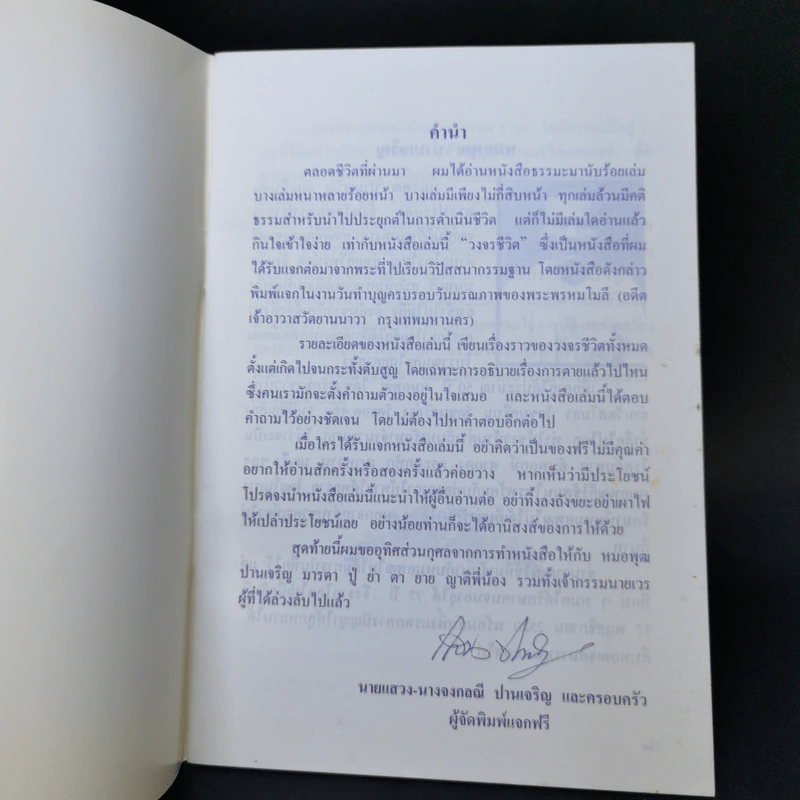 คำนำ
ตลอดชีวิตที่ผ่านมา ผมได้อ่านหนังสือธรรมะมานับร้อยเล่ม
บางเล่มหนาหลายร้อยหน้า บางเล่มมีเพียงไม่กี่สิบหน้า ทุกเล่มล้วนมีคติ
ธรรมสำหรับนำไปประยุกต์ในการดำเนินชีวิต แต่ก็ไม่มีเล่มใดอ่านแล้ว
กินใจเข้าใจง่าย เท่ากับหนังสือเล่มนี้ “วงจรชีวิต” ซึ่งเป็นหนังสือที่ผม
ได้รับแจกต่อมาจากพระที่ไปเรียนวิปัสสนากรรมฐาน โดยหนังสือดังกล่าว
พิมพ์แจกในงานวันทำบุญครบรอบวันมรณภาพของพระพรหมโมลี (อดีต
เจ้าอาวาสวัดยานนาวา กรุงเทพมหานคร)
รายละเอียดของหนังสือเล่มนี้ เขียนเรื่องราวของวงจรชีวิตทั้งหมด
ตั้งแต่เกิดไปจนกระทั่งดับสูญ โดยเฉพาะการอธิบายเรื่องการตายแล้วไปไหน
ซึ่งคนเรามักจะตั้งคำถามตัวเองอยู่ในใจเสมอ และหนังสือเล่มนี้ได้ตอบ
คำถามไว้อย่างชัดเจน โดยไม่ต้องไปหาคำตอบอีกต่อไป
เมื่อใครได้รับแจกหนังสือเล่มนี้ อย่าคิดว่าเป็นของฟรีไม่มีคุณค่า
อยากให้อ่านสักครั้งหรือสองครั้งแล้วค่อยวาง หากเห็นว่ามีประโยชน์
โปรดจงนำหนังสือเล่มนี้แนะนำให้ผู้อื่นอ่านต่อ อย่าทิ้งลงถังขยะอย่าเผาไฟ
ให้เปล่าประโยชน์เลย อย่างน้อยท่านก็จะได้อานิสงส์ของการให้ด้วย
สุดท้ายนี้ผมขออุทิศส่วนกุศลจากการทำหนังสือให้กับ หมอพุฒ
ปานเจริญ มารดา ปู่ ย่า ตา ยาย ญาติพี่น้อง รวมทั้งเจ้ากรรมนายเวร
ผู้ที่ได้ล่วงลับไปแล้ว
นายแสวง-นางจงกลณี ปานเจริญ และครอบครัว
ผู้จัดพิมพ์แจกฟรี